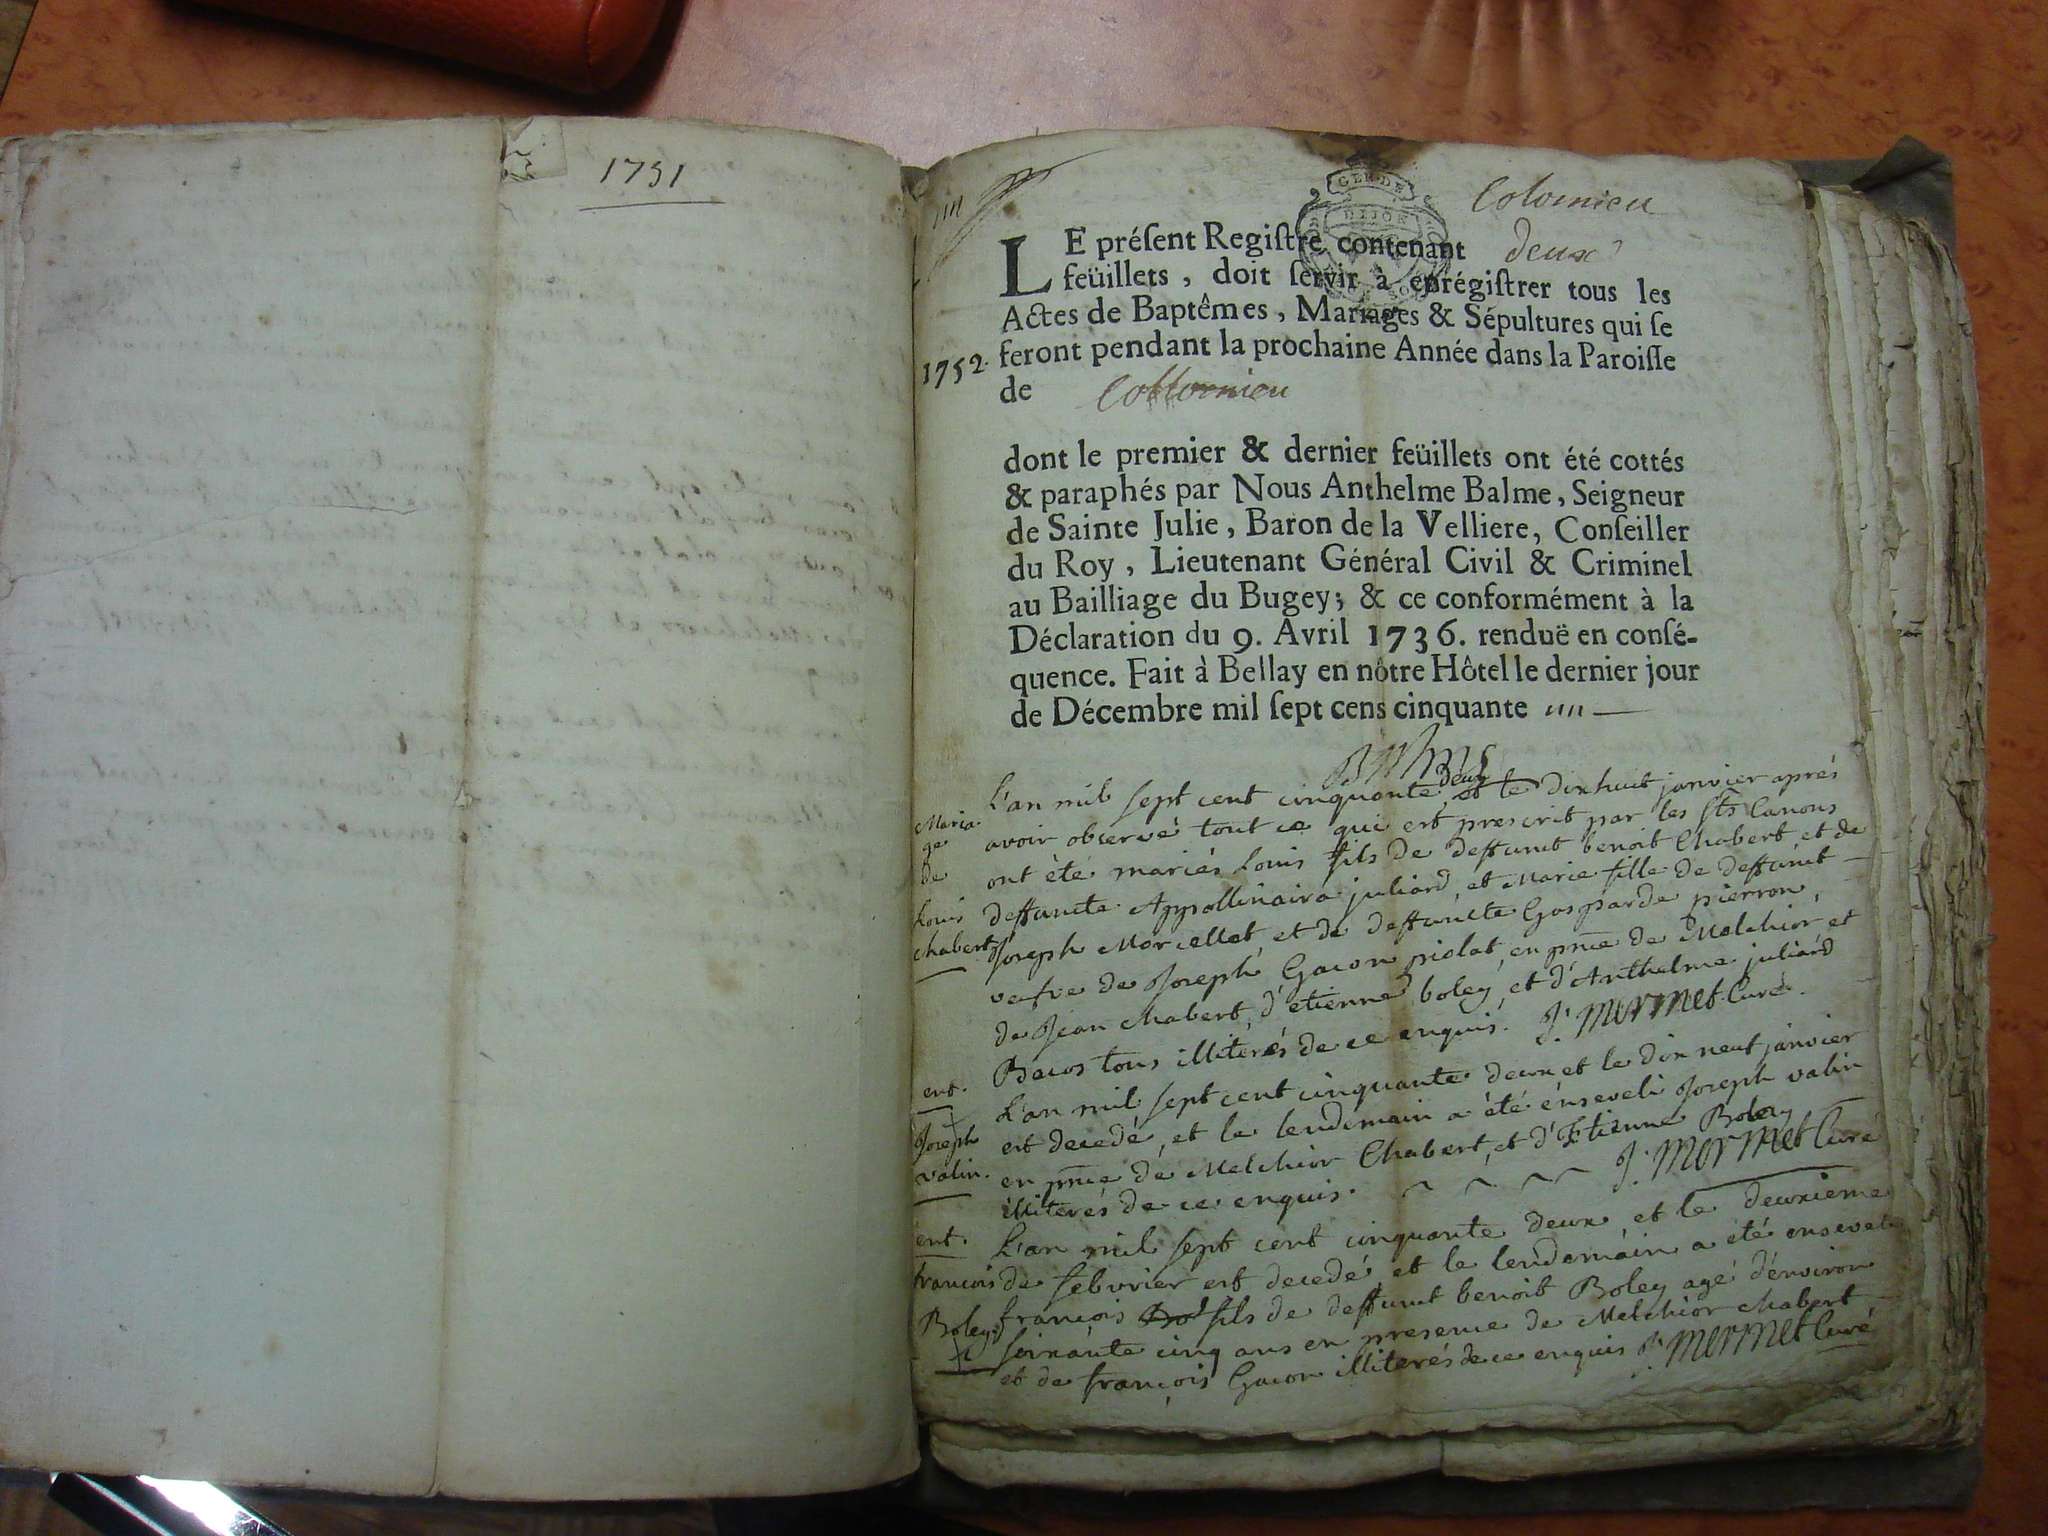 1751
Colomieu
GEN. DE
DIJON
LE préſent Regiſtre contenant deux
feüillets, doit ſervir à enrégiſtrer tous les
Actes de Baptêmes, Mariages & Sépultures qui ſe
1752. feront pendant la prochaine Année dans la Paroiſſe
de Collomieu
dont le premier & dernier feüillets ont été cottés
& paraphés par Nous Anthelme Balme, Seigneur
de Sainte Julie, Baron de la Velliere, Conſeiller
du Roy, Lieutenant Général Civil & Criminel
au Bailliage du Bugey; & ce conformément à la
Déclaration du 9. Avril 1736. renduë en conſé-
quence. Fait à Bellay en nôtre Hôtel le dernier jour
de Décembre mil ſept cens cinquante
Maria
ge
de
Louis
chabert
L'an mil sept cent cinquante deux et le dixhuit janvier aprés
avoir observé tout ce qui est prescrit par les Sts Canons
ont été mariés Louis fils de deffunct benoit Chabert et de
deffuncte Appollinaire juliard, et Marie fille de deffunct
Joseph Morcellet, et de deffuncte Gasparde pierron,
vefve de Joseph Gacon piolat, en pnce de Melchior et
de Jean chabert, d'etienne boley, et d'Anthelme juliard
Becos tous illiterés de ce enquis. J. Mermet Curé.
ent.
Joseph
valin.
L'an mil sept cent cinquante deux et le dix neuf janvier
est decedé, et le lendemain a été énseveli Joseph valin
en pnce de Melchior Chabert, et d'Etienne Boley
illiterés de ce enquis. J. Mermet Curé
ent.
francois
Boley
L'an mil sept cent cinquante deux et le deuxieme
de febvrier est decedé, et le lendemain a été enseveli
francois fils de deffunct benoit Boley agé d'environ
soixante cinq ans en presence de Melchior chabert
et de francois Gacon illiterés de ce enquis J. Mermet Curé